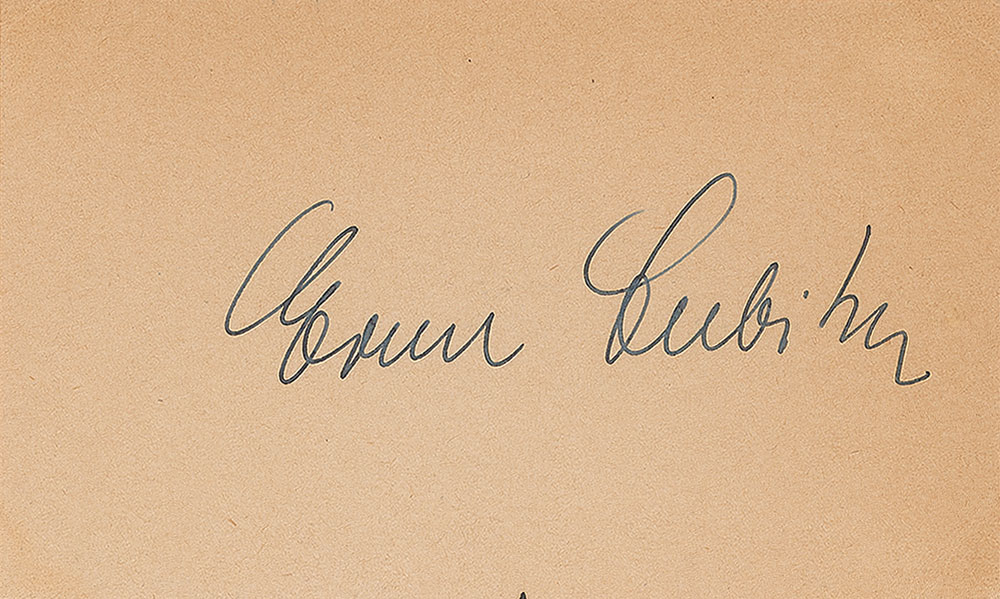 Ernst Lubitsch